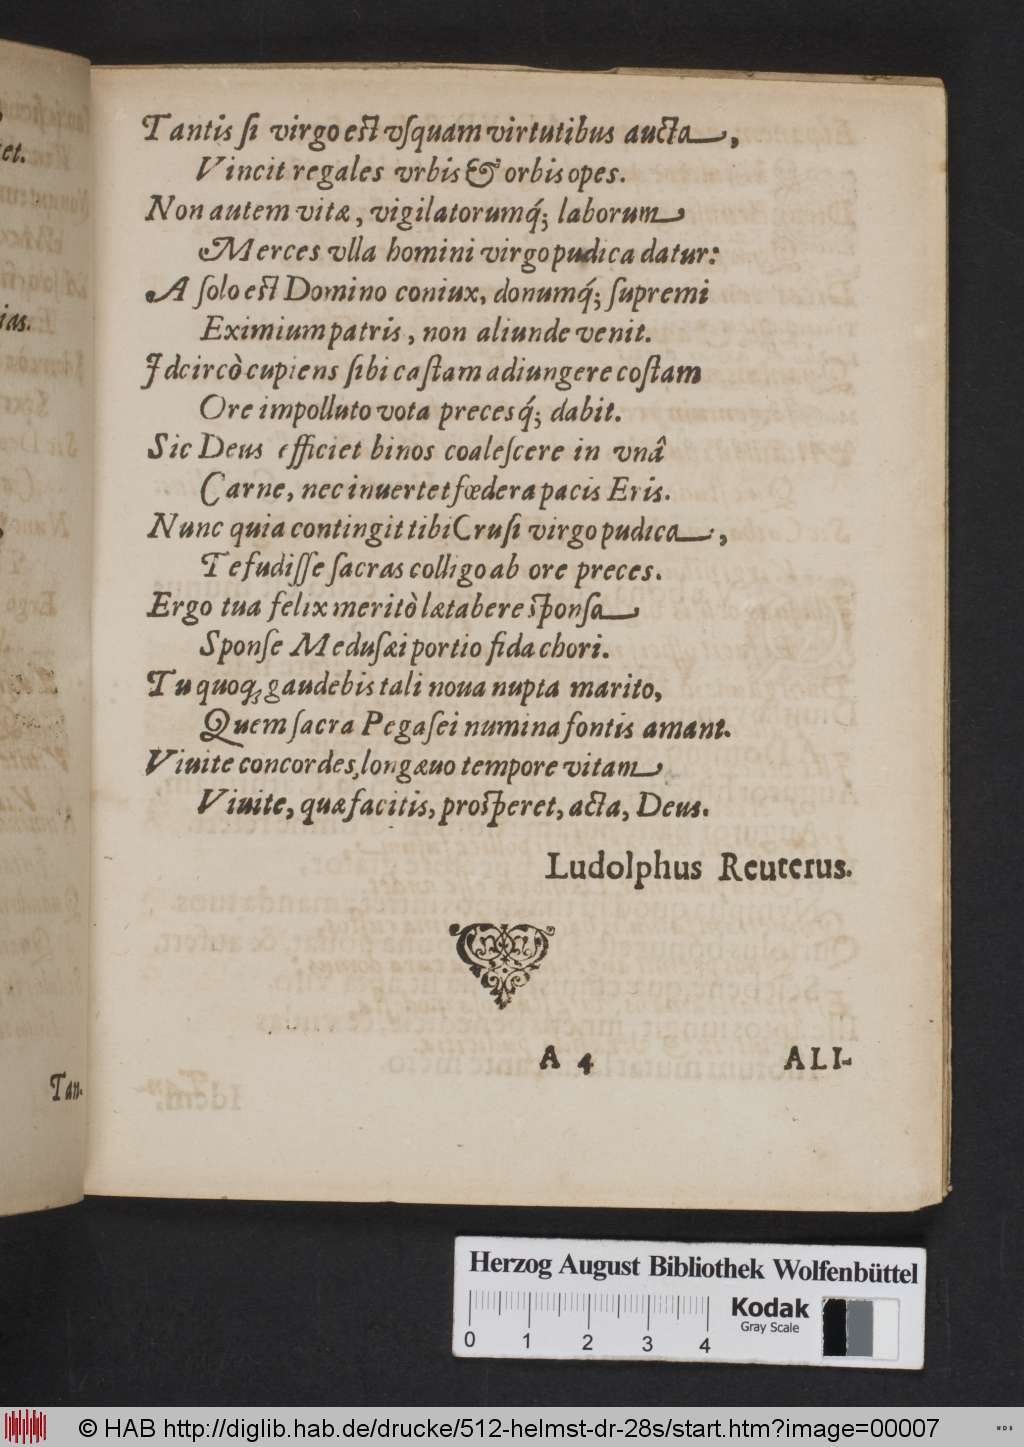 Tantis ſi virgo eſt vſquam virtutibus aucta,
Vincit regales vrbis & orbis opes.
Non autem vitæ, vigilatorumq́; laborum
Merces vlla homini virgo pudica datur:
A ſolo eſt Domino coniux, donumq́; ſupremi
Eximium patris, non aliunde venit.
Idcircò cupiens ſibi caſtam adiungere coſtam
Ore impolluto vota precesq́; dabit.
Sic Deus efficiet binos coaleſcere in vnâ
Carne, nec inuertet fœdera pacis Eris.
Nunc quia contingit tibi Cruſi virgo pudica,
Te fudiſſe ſacras colligo ab ore preces.
Ergo tua felix meritò lætabere ſponſa
Sponſe Meduſæi portio fida chori.
Tu quoq; gaudebis tali noua nupta marito,
Quem ſacra Pegaſei numina fontis amant.
Viuite concordes, longæuo tempore vitam
Viuite, quæ facitis, proſperet, acta, Deus.
Ludolphus Reuterus.
A 4 ALI-
et.
ias.
Tan-
Herzog August Bibliothek Wolfenbüttel
Kodak
Gray Scale
0 1 2 3 4
© HAB http://diglib.hab.de/drucke/512-helmst-dr-28s/start.htm?image=00007